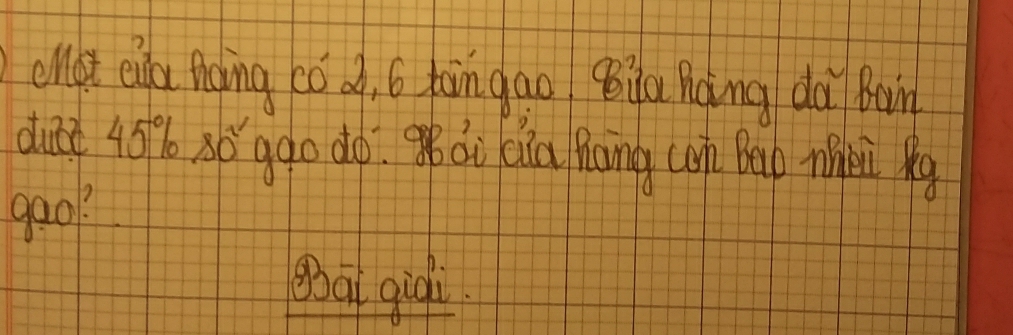 ) Một cửa hàng có 2,6 tấn gạo. Cửa hàng đã bán
được 45% số gạo đó. Hỏi cửa hàng còn bao nhiêu kg
gạo?
Bài giải.